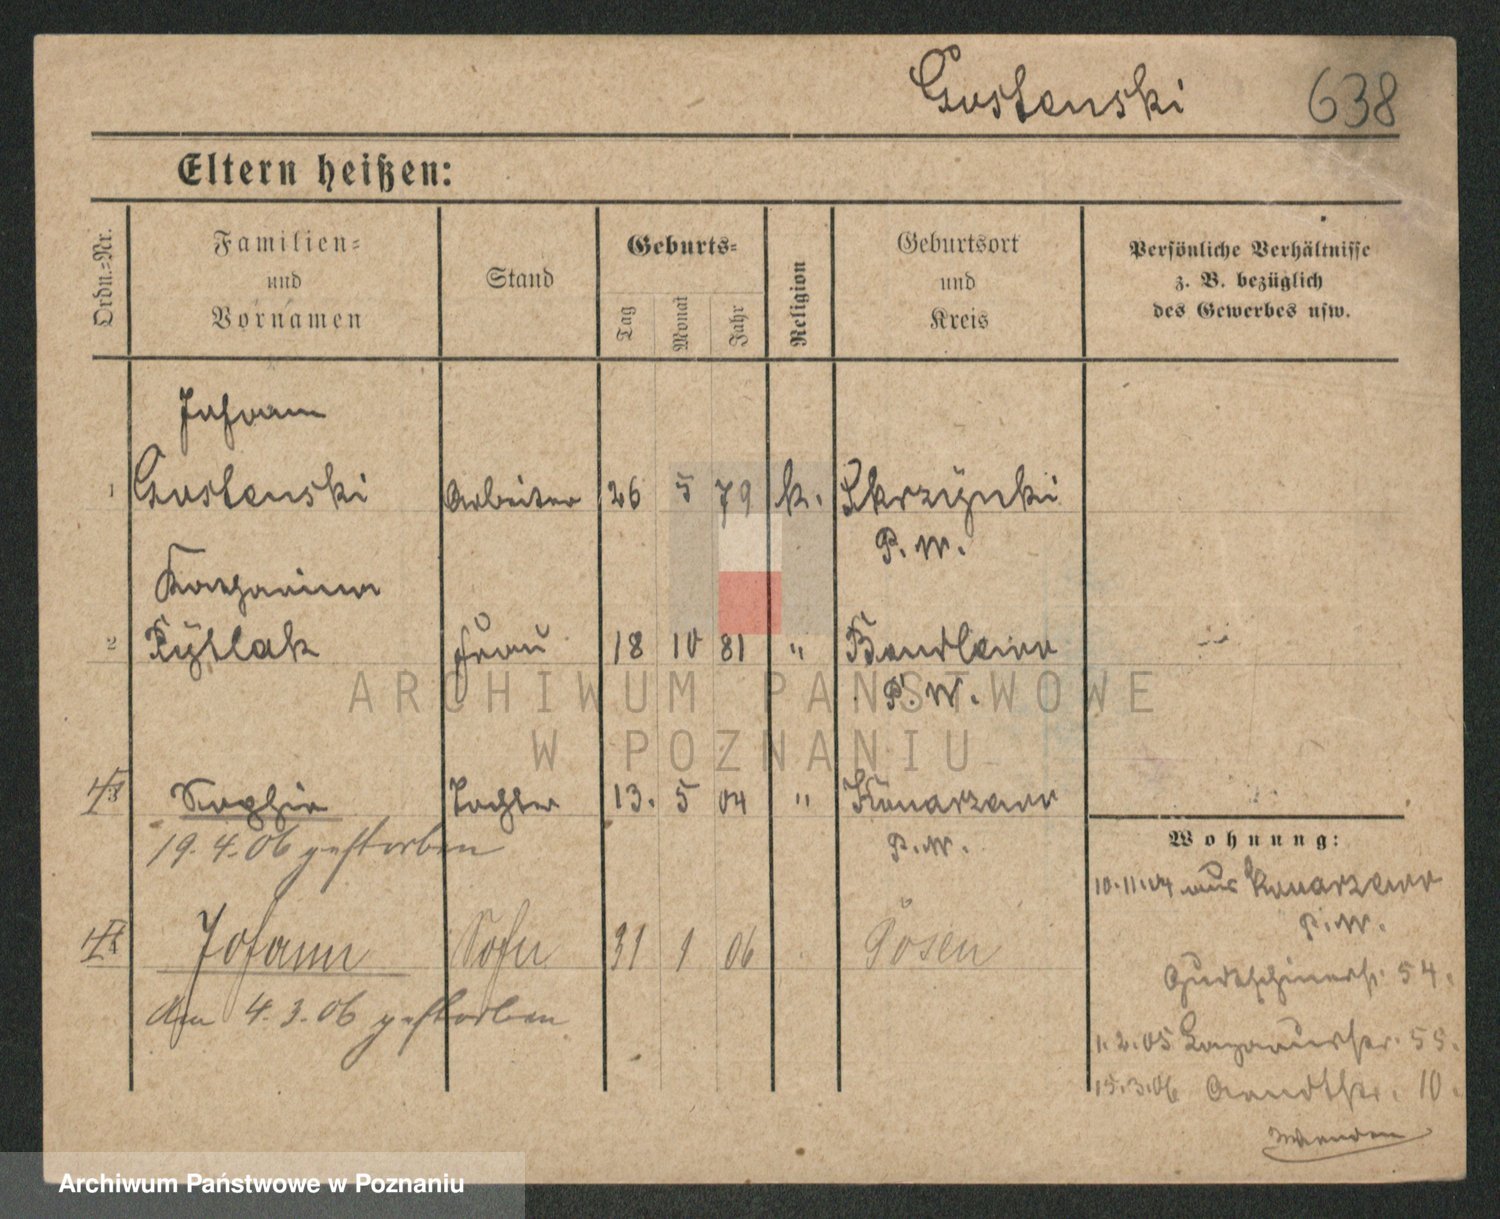 Gostenski 638
Eltern heißen:
Ordn.=Nr.
Familien=
und
Vornamen
Stand
Geburts=
Tag
Monat
Jahr
Religion
Geburtsort
und
Kreis
Persönliche Verhältnisse
z. B. bezüglich
des Gewerbes usw.
Johann
1 Gostenski Arbeiter 26 5 79 k. Skrzynki
P. W.
Katharina
2 Frau 18 10 81 " Bendlewo
P. W.
3 Sophie Tochter 13. 5 04 " Konarzewo
19.4.06 gestorben P. W.
4 Johann Sohn 31 1 06 Posen
Am 4.3.06 gestorben
Wohnung:
10.11.04 aus Konarzewo
P. W.
54.
1.2.05 55.
15.3.06 Arndtstr. 10.
Wenden
ARCHIWUM PAŃSTWOWE
W POZNANIU
Archiwum Państwowe w Poznaniu